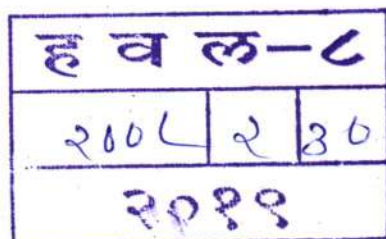 ह व ल-८
२००८ २ ३०
२०१९